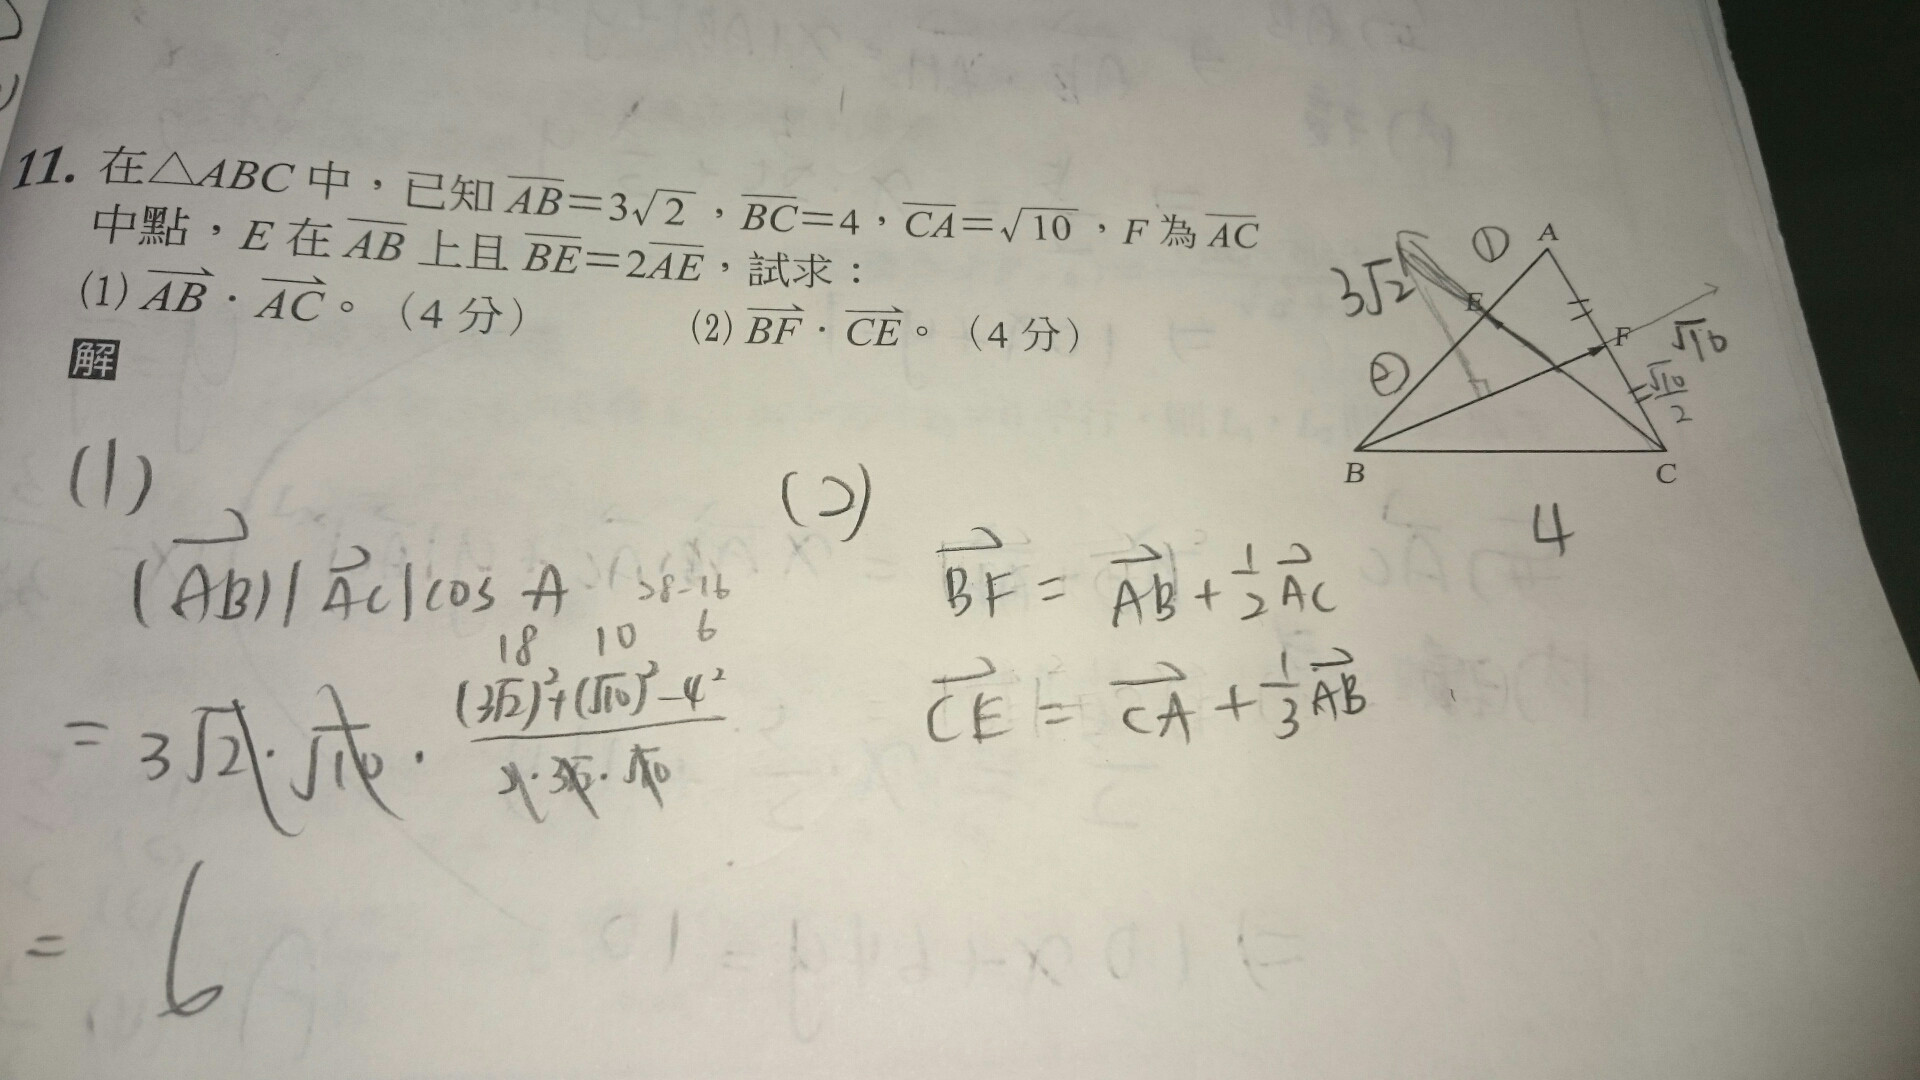 11. 在△ABC 中，已知 AB=3√2，BC=4，CA=√10，F 為 AC
中點，E 在 AB 上且 BE=2AE，試求：
(1) AB · AC。（4 分） (2) BF · CE。（4 分）
解
A
①
3√2
E
F
√10
②
√10/2
B
C
4
(1)
|AB||AC|cos A
28-16
18 10 6
= 3√2 · √10 · ((3√2)²+(√10)²-4²)/(2·3√2·√10)
= 6
(2)
BF = AB + 1/2 AC
CE = CA + 1/3 AB